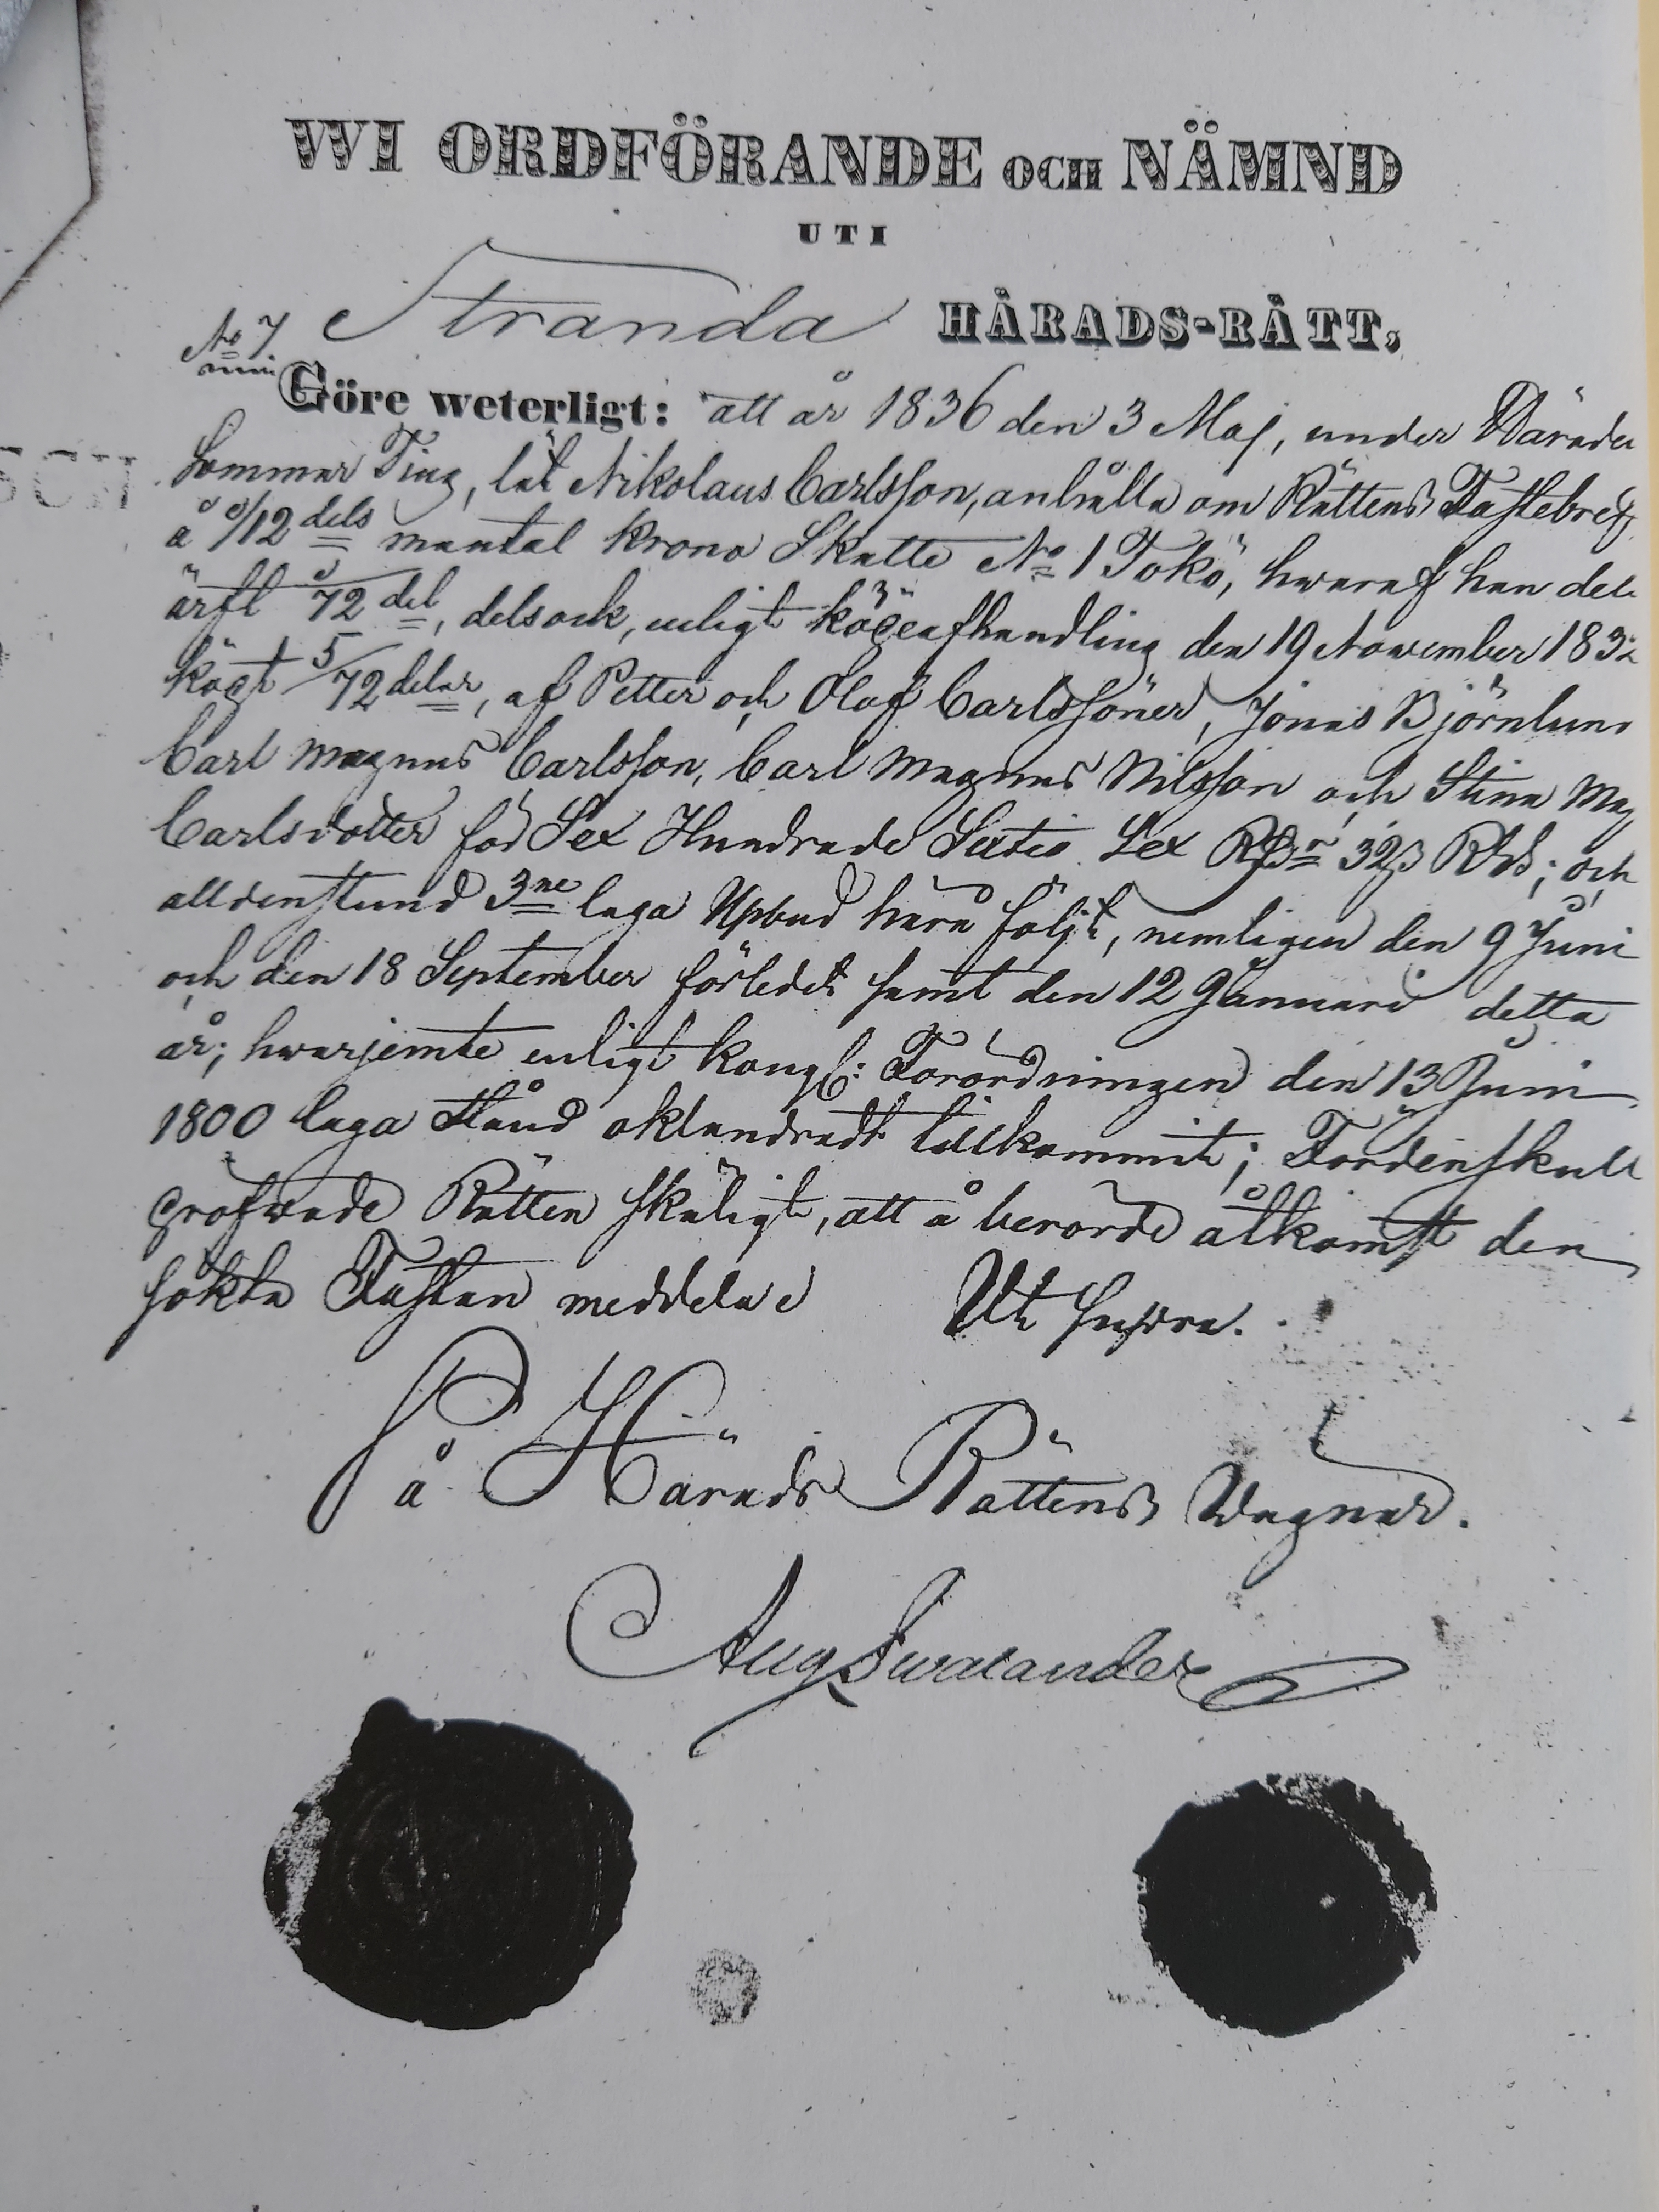 WI ORDFÖRANDE OCH NÄMND
UTI
No 7 Stranda HÄRADS-RÄTT,
Göre weterligt: att år 1836 den 3 Maj, under Härade
Sommar Ting, lät Nikolaus Carlsson, anhålla om Rättens Fastebref,
å 1/12 dels mantal krono Skatte No 1 Tokö, hwaraf han del
ärft 1/72 del, dels ock, enligt köpeafhandling den 19 November 183
köpt 5/72 delar, af Petter och Olof Carlssöner, Jonas Björnlund
Carl Magnus Carlsson, Carl Magnus Nilsson och Stina Mag
Carlsdotter för Sex Hundrade Sextio Sex 32 ß Rgs; och
alldenstund 3ne laga Upbud härå följt, nemligen den 9 Juni
och den 18 September förledet samt den 12 Januari detta
år; hwarjemte enligt Kongl: Förordningen den 13 Juni
1800 laga stånd oklandradt tillkommit; Fördenskull
pröfwade Rätten skäligt, att å berörde åtkomst den
sökta Fastan meddela Ut supra.
På Härads Rättens Wägnar.
Aug Swalander